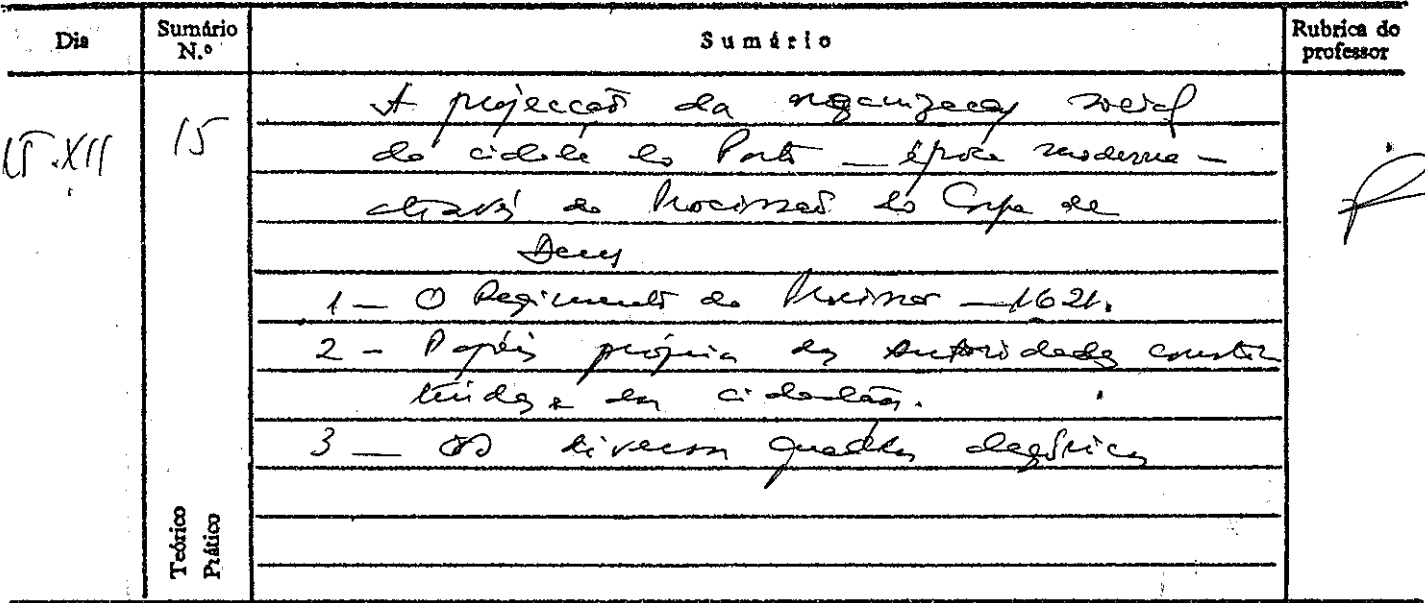 Dia
Sumário N.º
Sumário
Rubrica do professor
15.XII
15
A projecção da organização social
da cidade do Porto — época moderna —
através da Procissão do Corpo de
Deus
1 — O Regimento da Procissão — 1621.
2 — Papéis próprios das autoridades consti
tuídas e dos cidadãos.
3 — Os diversos quadros alegóricos
Teórico
Prático